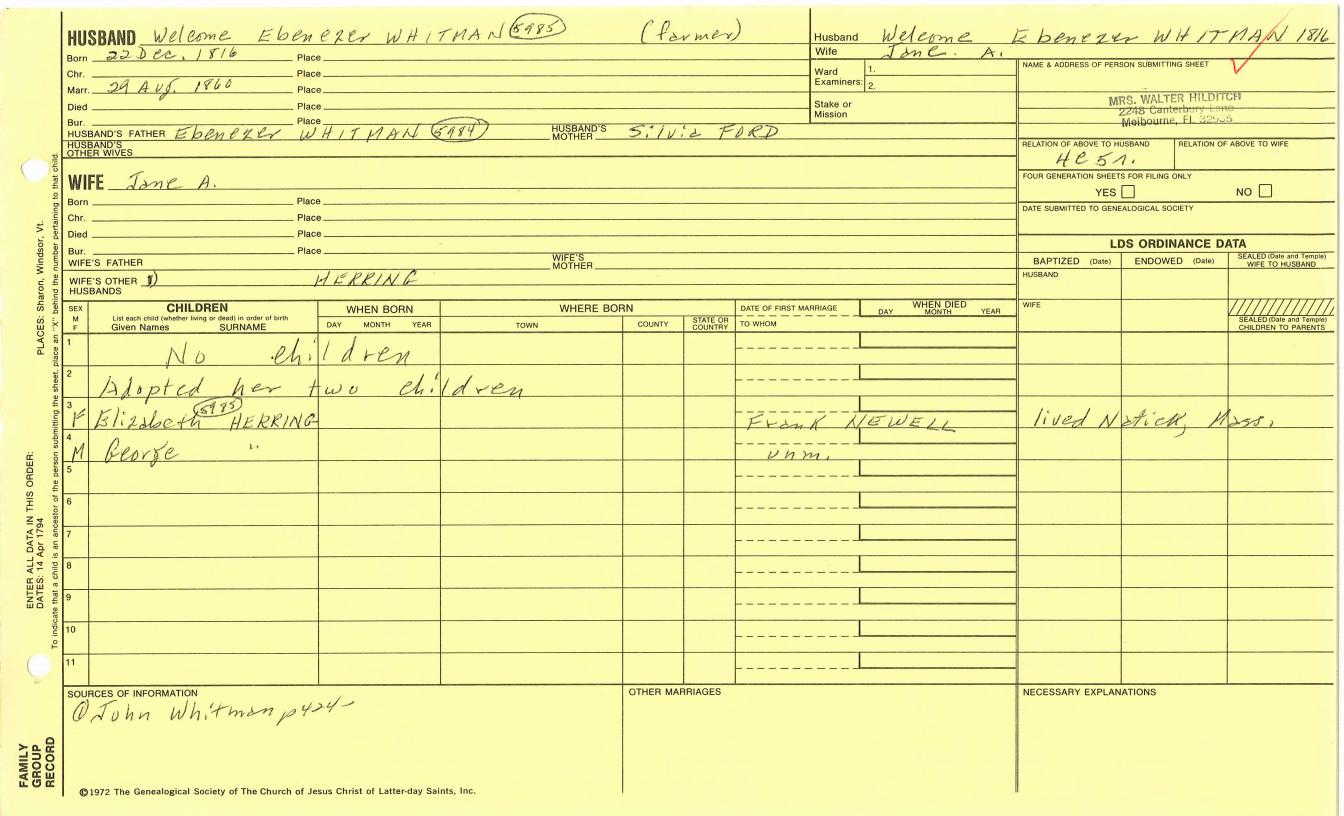 HUSBAND Welcome Ebenezer WHITMAN 5985 (farmer)
Born 22 Dec. 1816 Place
Chr. Place
Marr. 29 Aug. 1860 Place
Died Place
Bur. Place
HUSBAND'S FATHER Ebenezer WHITMAN 5984 HUSBAND'S MOTHER Silvia FORD
HUSBAND'S OTHER WIVES
WIFE Jane A.
Born Place
Chr. Place
Died Place
Bur. Place
WIFE'S FATHER WIFE'S MOTHER
WIFE'S OTHER HUSBANDS 1) HERRING
Husband Welcome Ebenezer WHITMAN 1816
Wife Jane. A.
Ward Examiners: 1.
2.
Stake or Mission
NAME & ADDRESS OF PERSON SUBMITTING SHEET
MRS. WALTER HILDITCH
2248 Canterbury Lane
Melbourne, FL 32935
RELATION OF ABOVE TO HUSBAND RELATION OF ABOVE TO WIFE
4C5r.
FOUR GENERATION SHEETS FOR FILING ONLY
YES NO
DATE SUBMITTED TO GENEALOGICAL SOCIETY
LDS ORDINANCE DATA
BAPTIZED (Date) ENDOWED (Date) SEALED (Date and Temple) WIFE TO HUSBAND
HUSBAND
WIFE
SEALED (Date and Temple) CHILDREN TO PARENTS
SEX M F
CHILDREN
List each child (whether living or dead) in order of birth
Given Names SURNAME
WHEN BORN
DAY MONTH YEAR
WHERE BORN
TOWN COUNTY STATE OR COUNTRY
DATE OF FIRST MARRIAGE
TO WHOM
WHEN DIED
DAY MONTH YEAR
1 No children
2 Adopted her two children
3 F Elizabeth 5985 HERRING Frank NEWELL lived Natick, Mass.
4 M George " unm.
5
6
7
8
9
10
11
SOURCES OF INFORMATION
① John Whitman p424
OTHER MARRIAGES
NECESSARY EXPLANATIONS
©1972 The Genealogical Society of The Church of Jesus Christ of Latter-day Saints, Inc.
FAMILY GROUP RECORD
ENTER ALL DATA IN THIS ORDER:
DATES: 14 Apr 1794 PLACES: Sharon, Windsor, Vt.
To indicate that a child is an ancestor of the person submitting the sheet, place an "X" behind the number pertaining to that child.